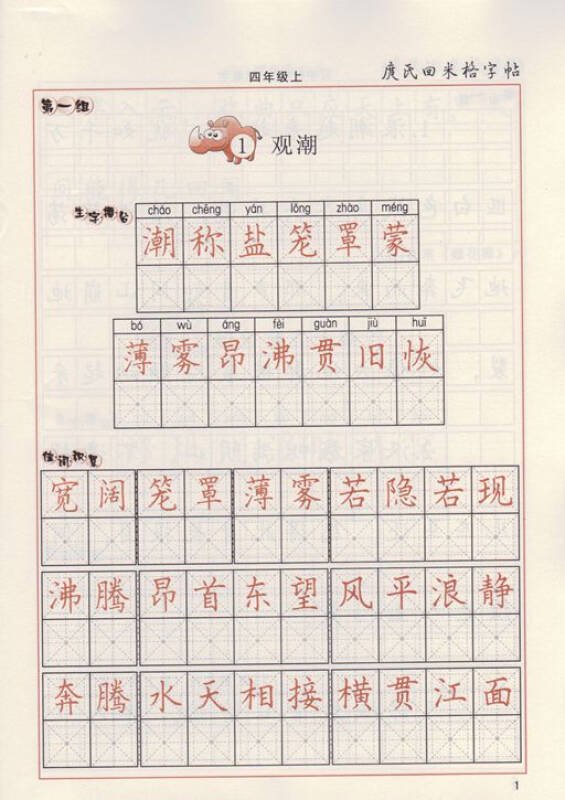 四年级上 庹氏回米格字帖
第一组
1 观潮
生字描台
cháo chēng yán lǒng zhào méng
潮 称 盐 笼 罩 蒙
bó wù áng fèi guàn jiù huī
薄 雾 昂 沸 贯 旧 恢
佳词积累
宽阔 笼罩 薄雾 若隐若现
沸腾 昂首东望 风平浪静
奔腾 水天相接 横贯江面
1